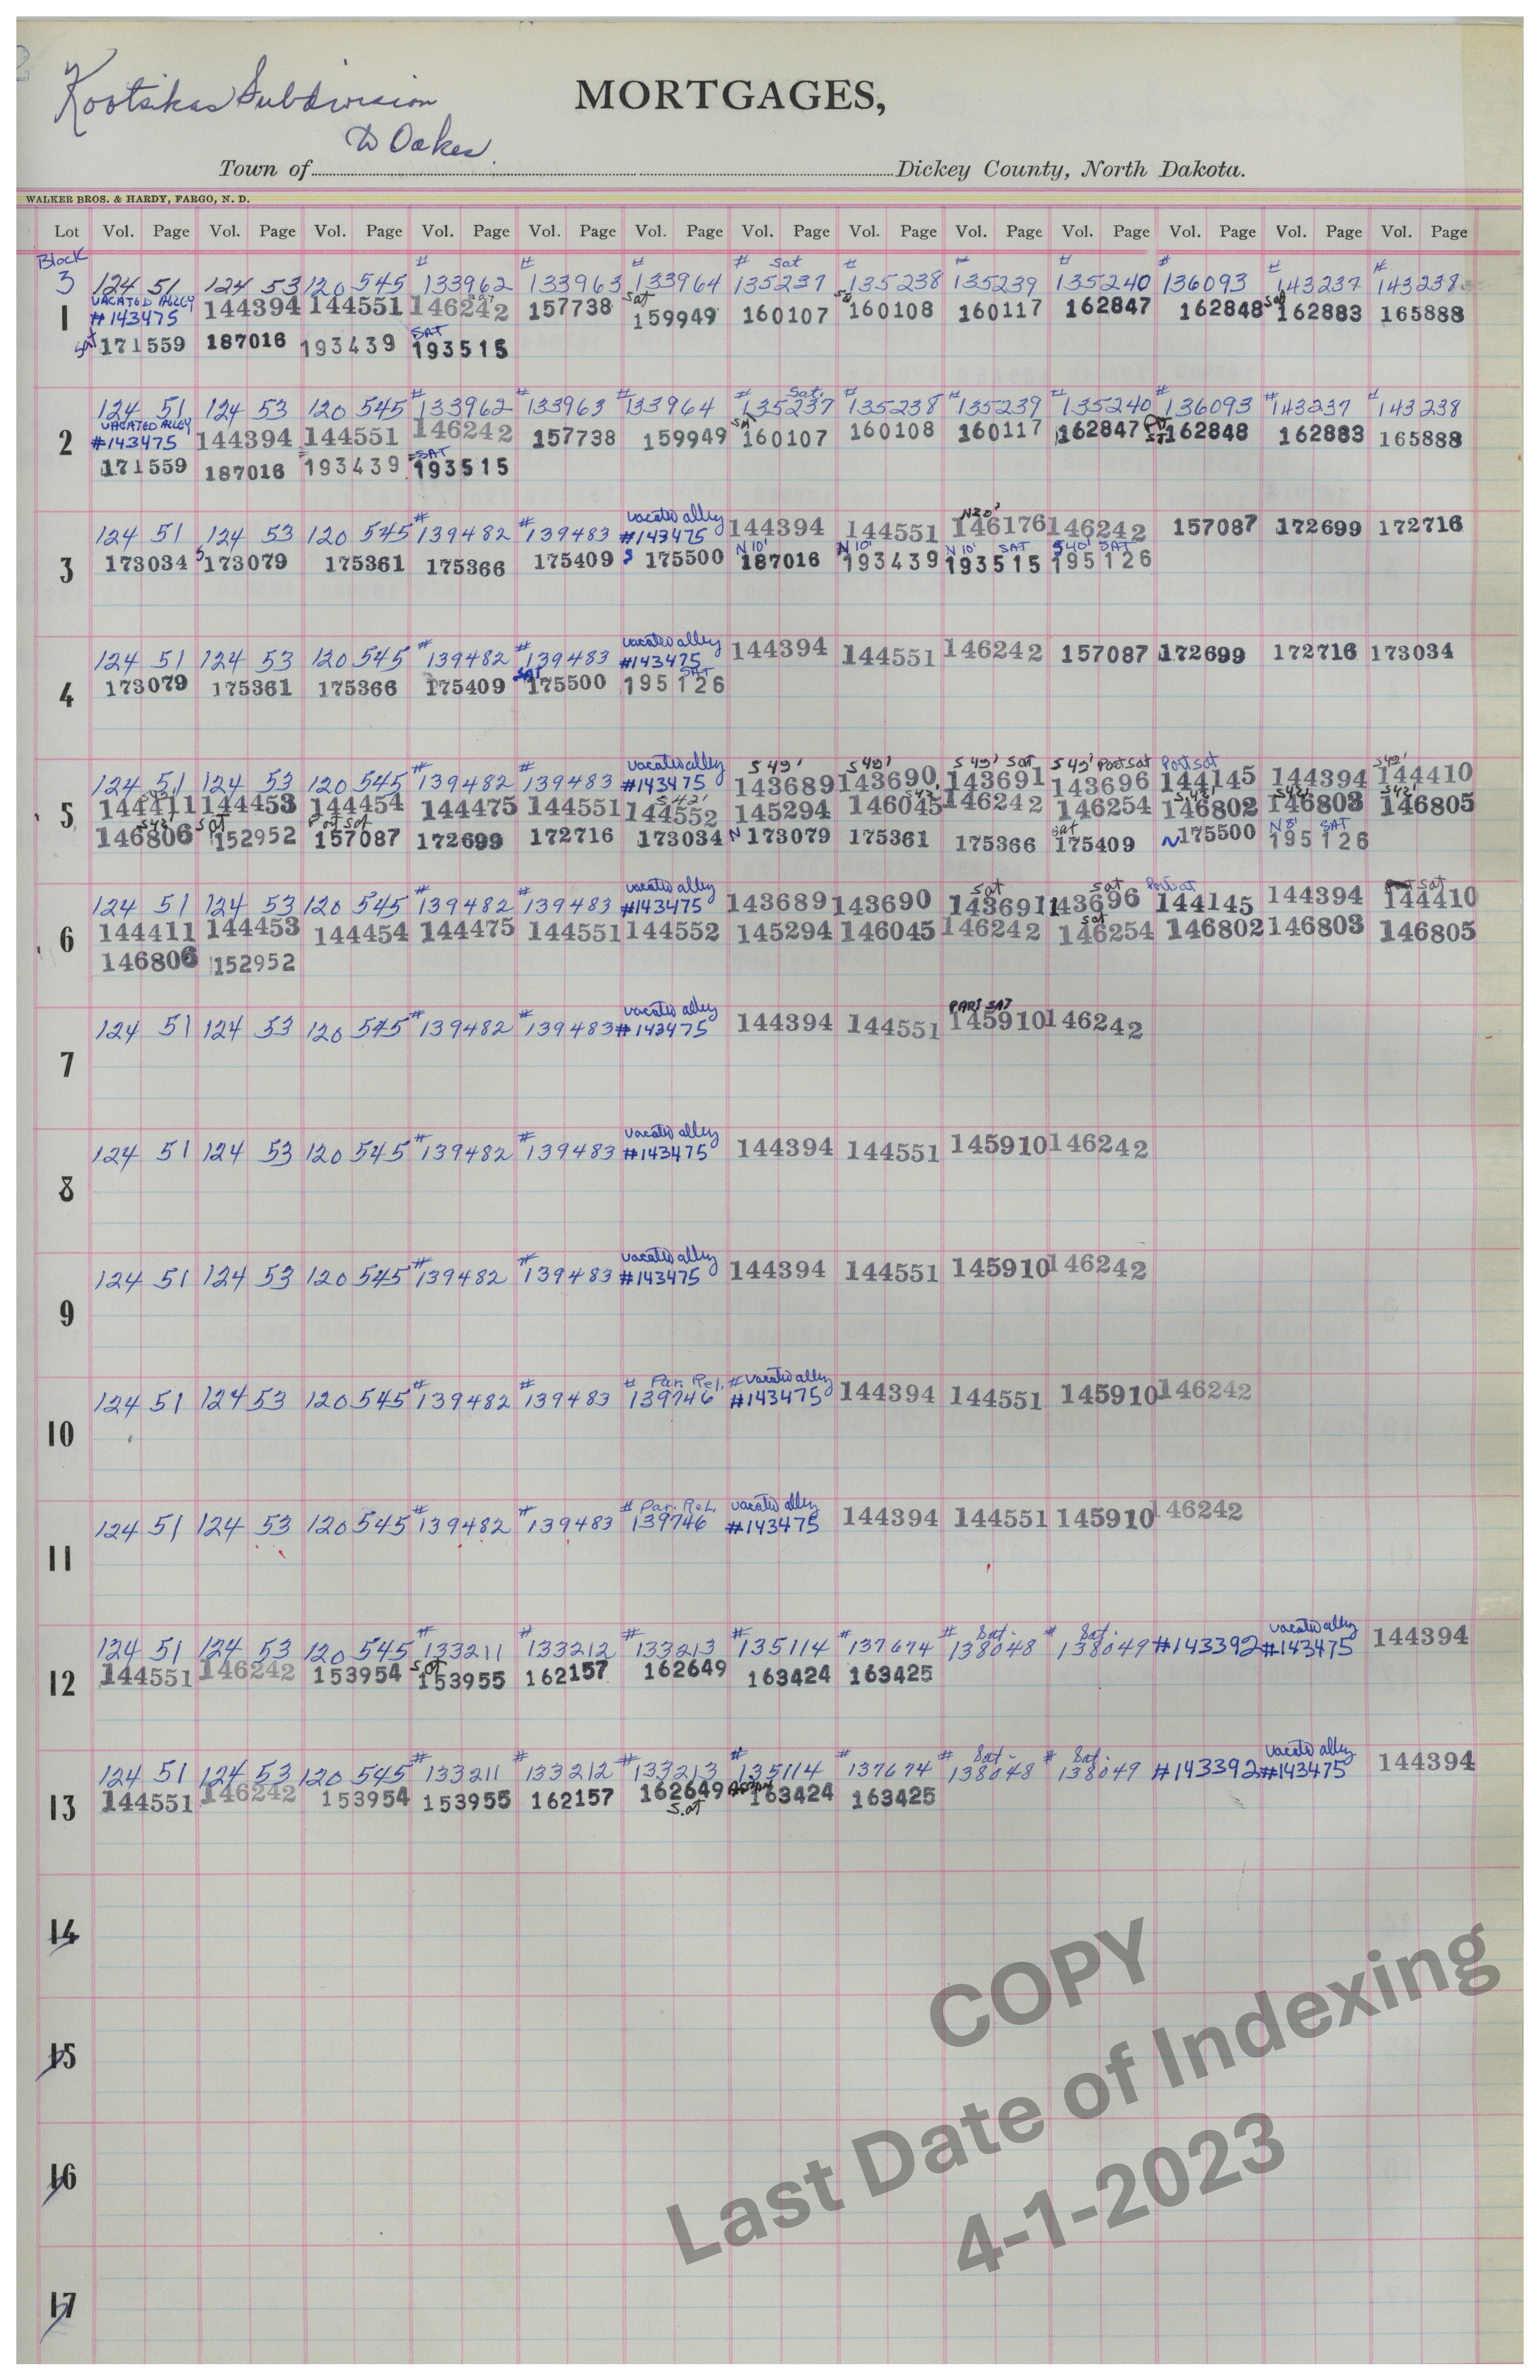 Kootsikas Subdivision
MORTGAGES,
to Oakes.
Town of Dickey County, North Dakota.
WALKER BROS. & HARDY, FARGO, N. D.
Lot Vol. Page Vol. Page Vol. Page Vol. Page Vol. Page Vol. Page Vol. Page Vol. Page Vol. Page Vol. Page Vol. Page Vol. Page Vol. Page
Block
# # # # Sat # # # # # #
3 124 51 124 53 120 545 133962 133963 133964 135237 135238 135239 135240 136093 143237 143238
VACATED ALLEY Sat Sat Sat
1 #143475 144394 144551 146242 157738 159949 160107 160108 160117 162847 162848 162883 165888
SAT
Sat 171559 187016 193439 193515
# # # # Sat. # # # # # #
124 51 124 53 120 545 133962 133963 133964 135237 135238 135239 135240 136093 143237 143238
VACATED ALLEY Sat
2 #143475 144394 144551 146242 157738 159949 160107 160108 160117 162847 162848 162883 165888
SAT
171559 187016 193439 193515
# # vacated alley N20'
124 51 124 53 120 545 139482 139483 #143475 144394 144551 146176 146242 157087 172699 172716
S S N 10' N 10' N 10' SAT S 40' SAT
3 173034 173079 175361 175366 175409 175500 187016 193439 193515 195126
# # vacated alley
124 51 124 53 120 545 139482 139483 #143475 144394 144551 146242 157087 172699 172716 173034
SAT SAT
4 173079 175361 175366 175409 175500 195126
# # vacated alley S 42' S 42' S 42' Sat S 42' Part Sat Part Sat S 42'
124 51 124 53 120 545 139482 139483 #143475 143689 143690 143691 143696 144145 144394 144410
S 42' S 42' S 42' S 42' S 42'
5 144411 144453 144454 144475 144551 144552 145294 146045 146242 146254 146802 146803 146805
S 42' Sat Part Sat N Sat N N 8' SAT
146806 152952 157087 172699 172716 173034 173079 175361 175366 175409 175500 195126
# # vacated alley Sat Sat Part Sat Sat
124 51 124 53 120 545 139482 139483 #143475 143689 143690 143691 143696 144145 144394 144410
Sat
6 144411 144453 144454 144475 144551 144552 145294 146045 146242 146254 146802 146803 146805
146806 152952
# # vacated alley PART SAT
124 51 124 53 120 545 139482 139483 #143475 144394 144551 145910 146242
7
# # vacated alley
124 51 124 53 120 545 139482 139483 #143475 144394 144551 145910 146242
8
# # vacated alley
124 51 124 53 120 545 139482 139483 #143475 144394 144551 145910 146242
9
# # # Par. Rel. # vacated alley
124 51 124 53 120 545 139482 139483 139746 #143475 144394 144551 145910 146242
10
# # # Par. Rel. vacated alley
124 51 124 53 120 545 139482 139483 139746 #143475 144394 144551 145910 146242
11
# # # # # # Sat. # Sat. vacated alley
124 51 124 53 120 545 133211 133212 133213 135114 137674 138048 138049 #143392 #143475 144394
Sat
12 144551 146242 153954 153955 162157 162649 163424 163425
# # # # # # Sat. # Sat. vacated alley
124 51 124 53 120 545 133211 133212 133213 135114 137674 138048 138049 #143392 #143475 144394
13 144551 146242 153954 153955 162157 162649 163424 163425
Sat
14
15
16
17
COPY
Last Date of Indexing
4-1-2023